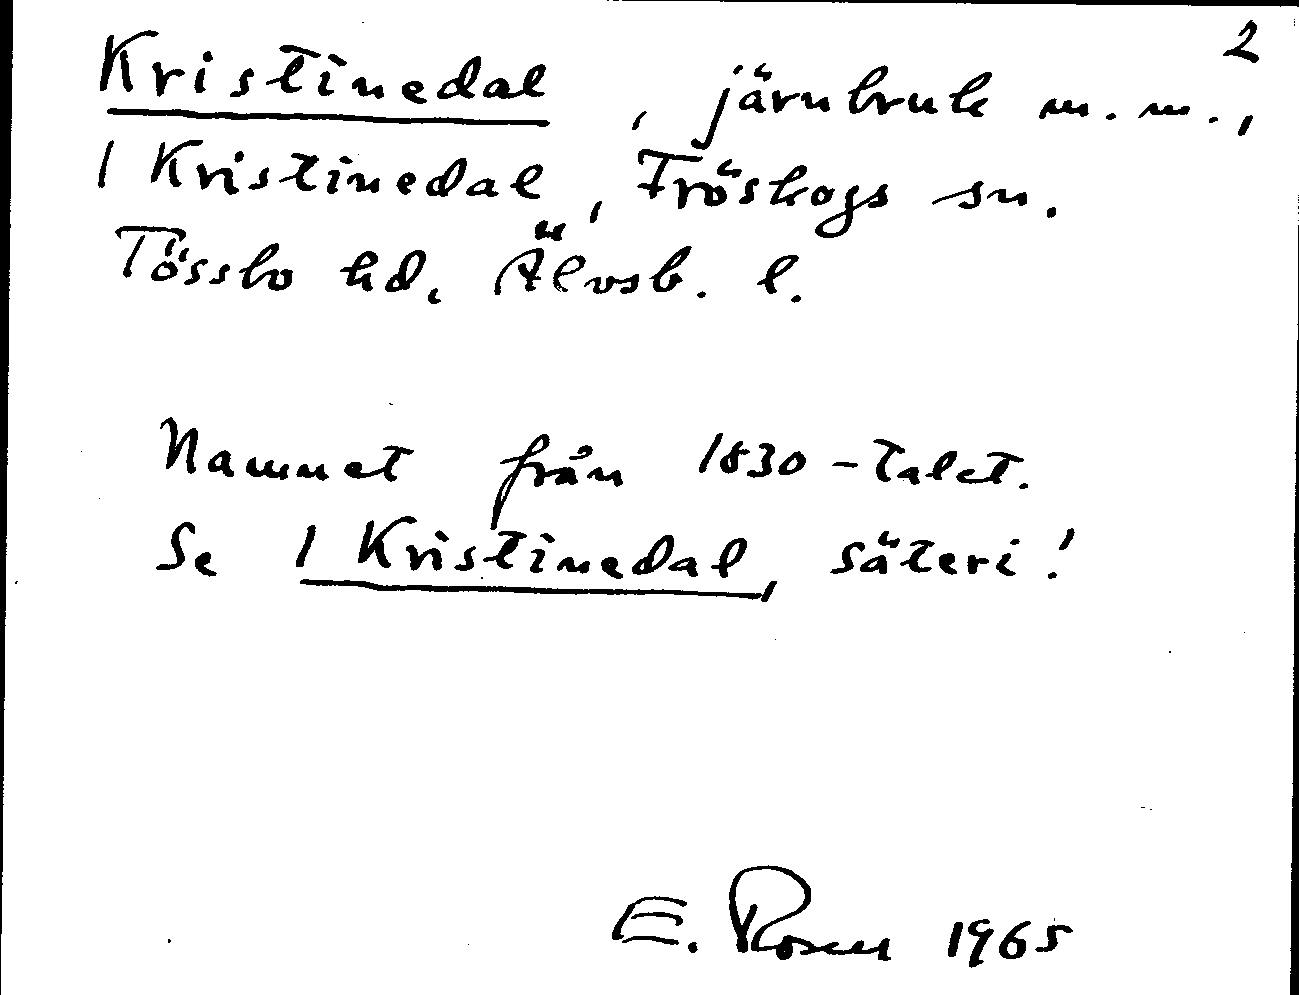 2
Kristinedal, järnbruk m.m.,
1 Kristinedal, Fröskogs sn.
Tössbo hd. Älvsb. l.
Namnet från 1830-talet.
Se 1 Kristinedal, säteri!
E. Rosen 1965